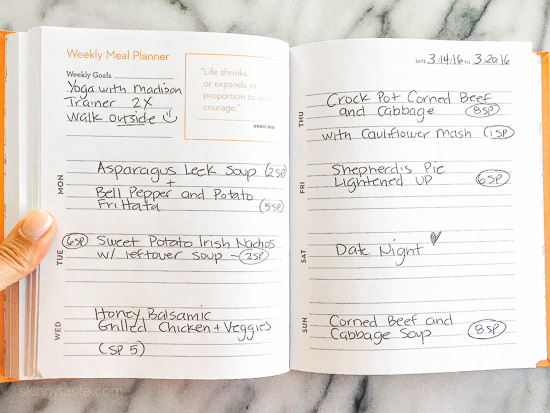 Weekly Meal Planner
Weekly Goals
Yoga with Madison
Trainer 2X
Walk outside
"Life shrinks
or expands in
proportion to
courage."
MON
Asparagus Leek Soup (2SP)
+
Bell Pepper and Potato
Frittata (5SP)
TUE
6SP Sweet Potato Irish Nachos
w/ leftover soup - 2SP
WED
Honey Balsamic
Grilled Chicken + Veggies
(SP 5)
DATE 3/14/16 TO 3/20/16
THU
Crock Pot Corned Beef
and Cabbage 8SP
with Cauliflower Mash 1SP
FRI
Shepherd's Pie
Lightened Up 6SP
SAT
Date Night
SUN
Corned Beef and
Cabbage Soup 8SP
skinnytaste.com